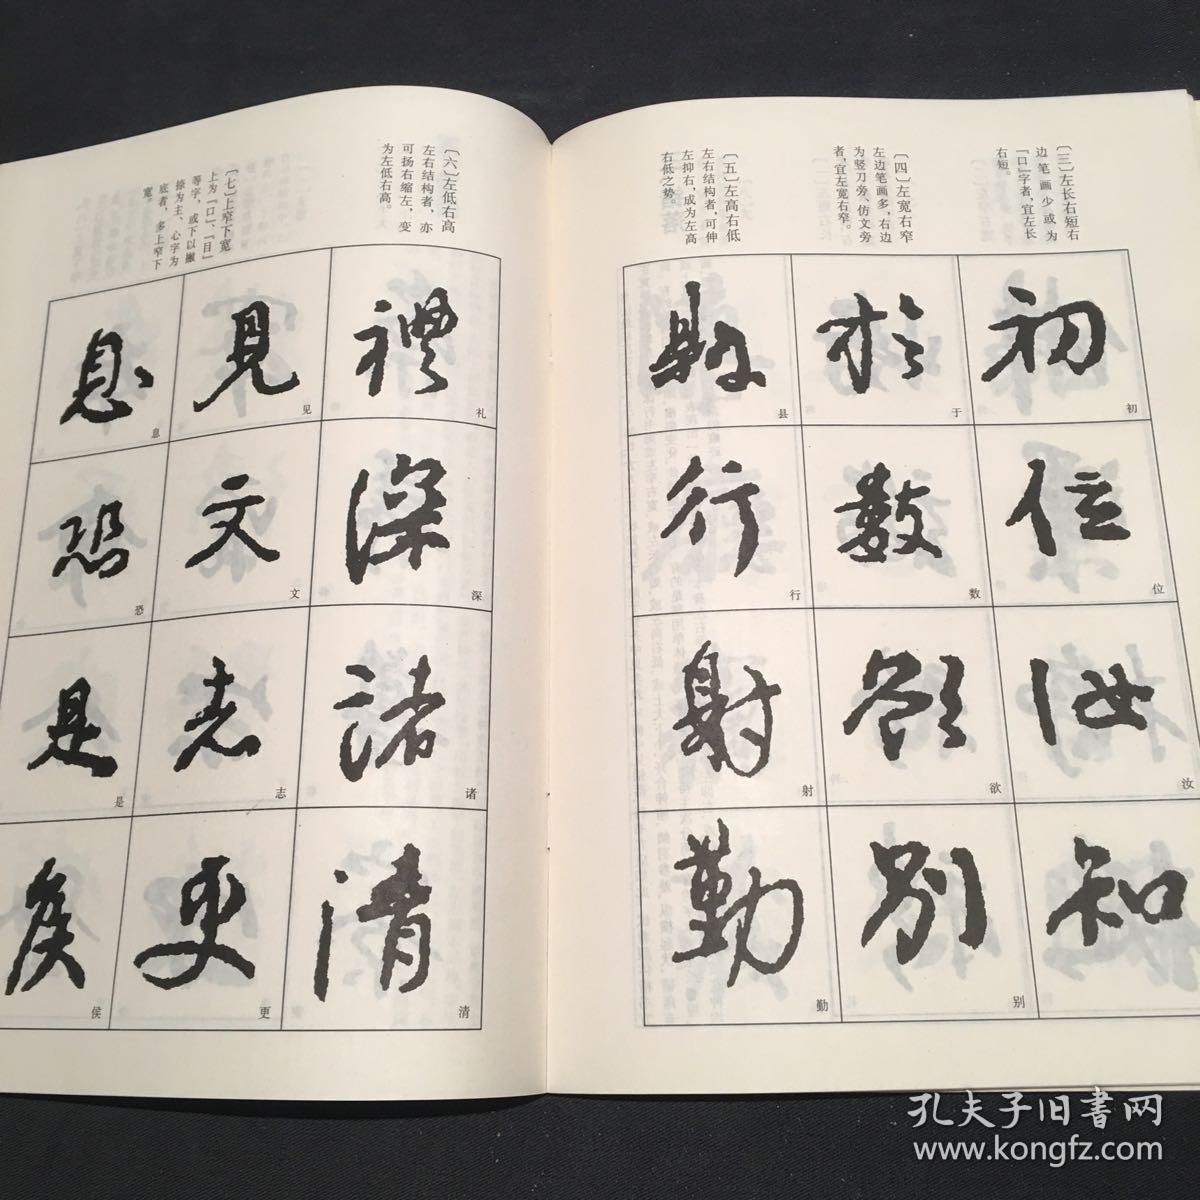 〔三〕左长右短右
边笔画少或为
「口」字者，宜左长
右短。
〔四〕左宽右窄
左边笔画多，右边
为竖刀旁、仿文旁
者，宜左宽右窄。
〔五〕左高右低
左右结构者，可伸
左抑右，成为左高
右低之势。
初
位
汝
知
于
数
欲
别
县
行
射
勤
〔六〕左低右高
左右结构者，亦
可扬右缩左，变
为左低右高。
〔七〕上窄下宽
上为「口」、「目」
等字，或下以撇
捺为主、心字为
底者，多上窄下
宽。
礼
深
诸
清
见
文
志
更
息
恐
是
侯
孔夫子旧书网
www.kongfz.com